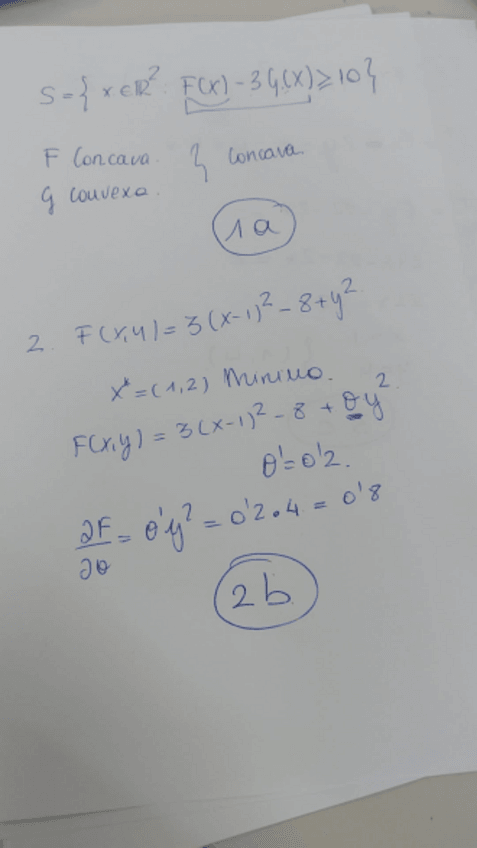 S = { x ∈ ℝ² : F(x) - 3G(x) ≥ 10 }
F Concava. } Concava
G convexa.
1a
2. F(x,y) = 3(x-1)² - 8 + y²
x* = (1,2) Minimo.
F(x,y) = 3(x-1)² - 8 + θy²
θ' = 0'2.
∂F/∂θ = θ'y² = 0'2 · 4 = 0'8
2b